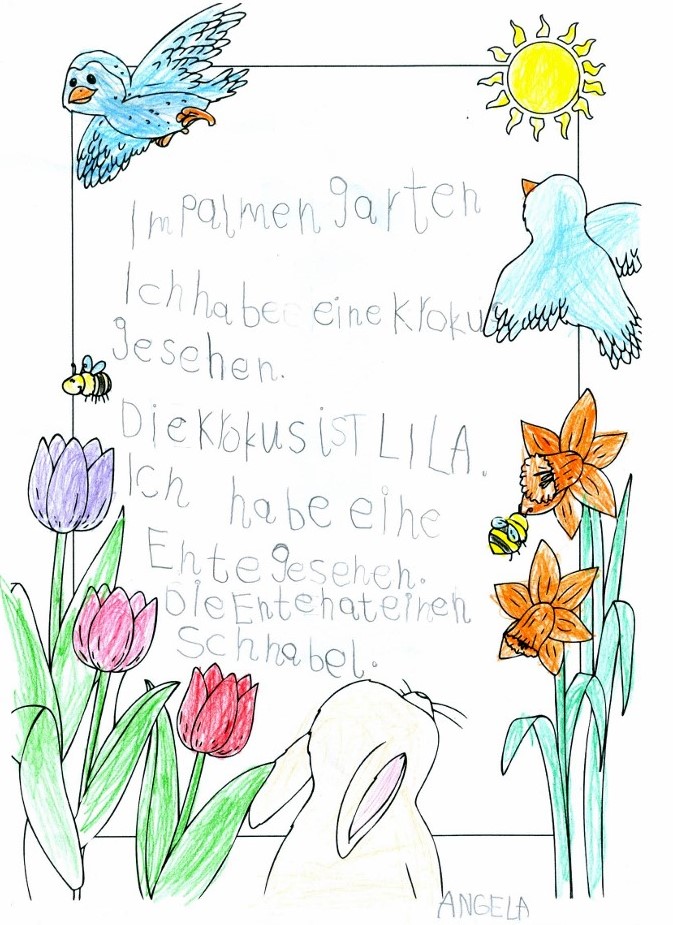 Im Palmengarten
Ich habe eine Krokus
gesehen.
Die Krokus ist LILA.
Ich habe eine
Ente gesehen.
Die Ente hat einen
Schnabel.
ANGELA